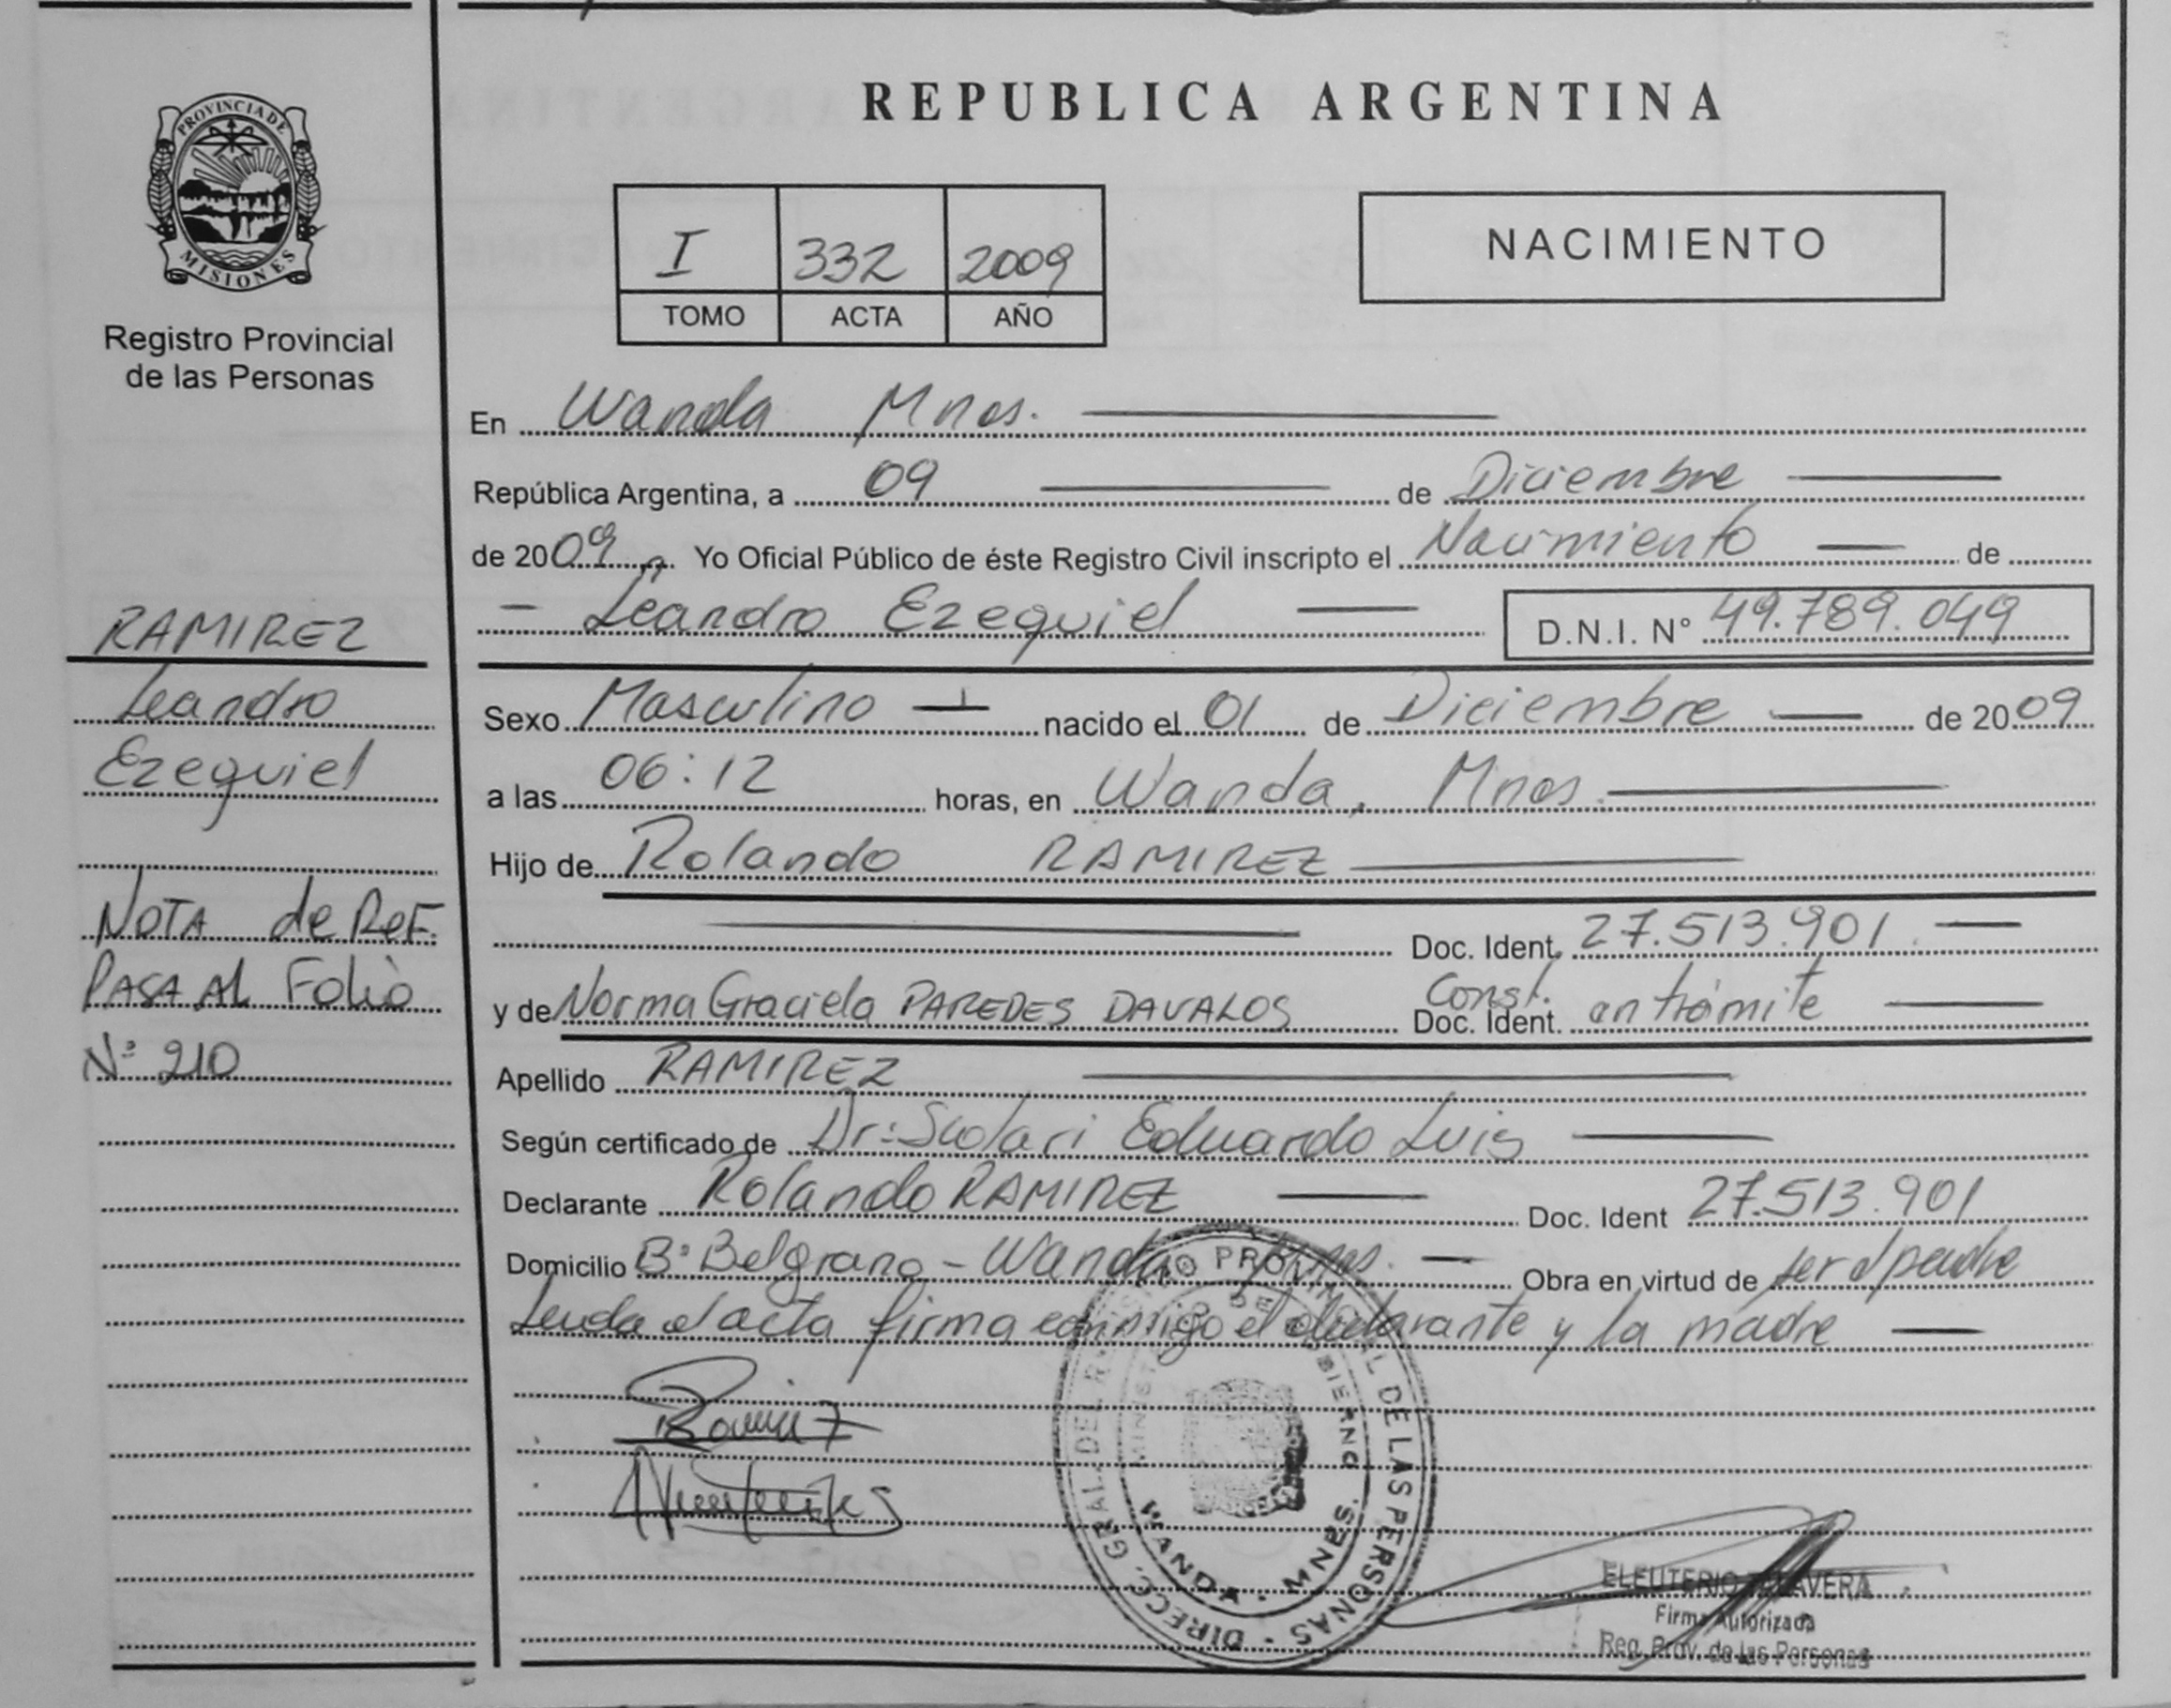 PROVINCIA DE
MISIONES
Registro Provincial
de las Personas
RAMIREZ
Leandro
Ezequiel
NOTA de ReF.
PASA AL Folio
Nº 210
REPUBLICA ARGENTINA
I 332 2009
TOMO ACTA AÑO
NACIMIENTO
En Wanda Mnes.
República Argentina, a 09 de Diciembre
de 2009 Yo Oficial Público de éste Registro Civil inscripto el Nacimiento de
Leandro Ezequiel D.N.I. N° 49.789.049
Sexo Masculino nacido el 01 de Diciembre de 2009
a las 06:12 horas, en Wanda, Mnes.
Hijo de Rolando RAMIREZ
Doc. Ident. 27.513.901
y de Norma Graciela PAREDES DAVALOS Const. Doc. Ident. en trámite
Apellido RAMIREZ
Según certificado de Dr: Scolari Eduardo Luis
Declarante Rolando RAMIREZ Doc. Ident 27.513.901
Domicilio Bº Belgrano - Wanda Mnes. Obra en virtud de ser el padre
Leida el acta firma conmigo el declarante y la madre
DIRECC. GRAL. DEL REGISTRO PROVINCIAL DE LAS PERSONAS
MINISTERIO DE GOBIERNO
WANDA - MNES.
ELEUTERIO TALAVERA
Firma Autorizada
Reg. Prov. de las Personas